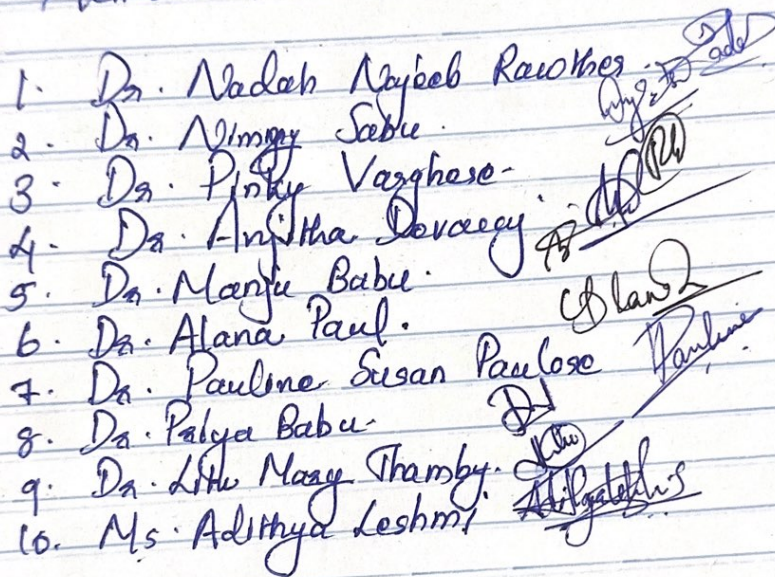 1. Dr. Nadah Najeeb Rawther
2. Dr. Nimmy Sabu.
3. Dr. Pinky Varghese
4. Dr. Anjitha Devassy
5. Dr. Manju Babu.
6. Dr. Alana Paul.
7. Dr. Pauline Susan Paulose Pauline
8. Dr. Priya Babu
9. Dr. Litu Mary Thamby.
10. Ms. Adithya Leshmi